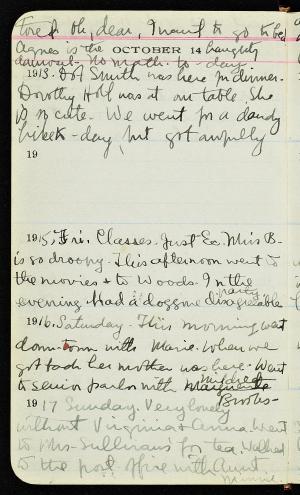 tired. Oh, dear, I want to go to bed
Agnes is the OCTOBER 14 haughty
damosel. No math. to-day.
1913. Dot Smith was here for dinner.
Dorothy was at our table. She
is so cute. We went for a dandy
hike to-day, but got awfully
19
1915, Fri. Classes. Just Ec. Miss B-
is so droopy. This afternoon went to
the movies & to Woods. In the
evening had a doggone disagreeable party.
1916. Saturday. This morning went
down town with Marie. When we
got back her mother was here. Went
to senior parlor with Mildred
Brooks-
1917 Sunday. Very lonely
without Virginia & Anna. Went
to Mrs. Sullivan's for tea. Walked
to the post office with Aunt